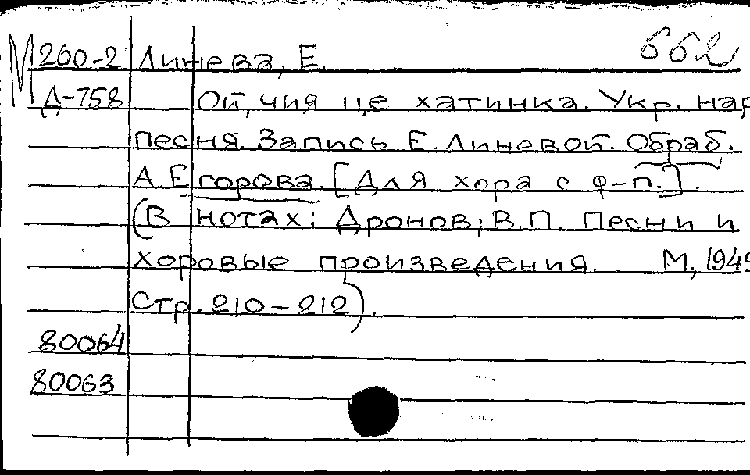 М 260-2 Линева, Е. 662
Д-758 Ой, чия це хатинка. Укр. нар
песня. Запись Е. Линевой. Обраб.
А. Егорова. [Для хора с ф-п.].
(В нотах: Дронов, В.П. Песни и
хоровые произведения. М, 1949
Стр. 210-212).
80064
80063